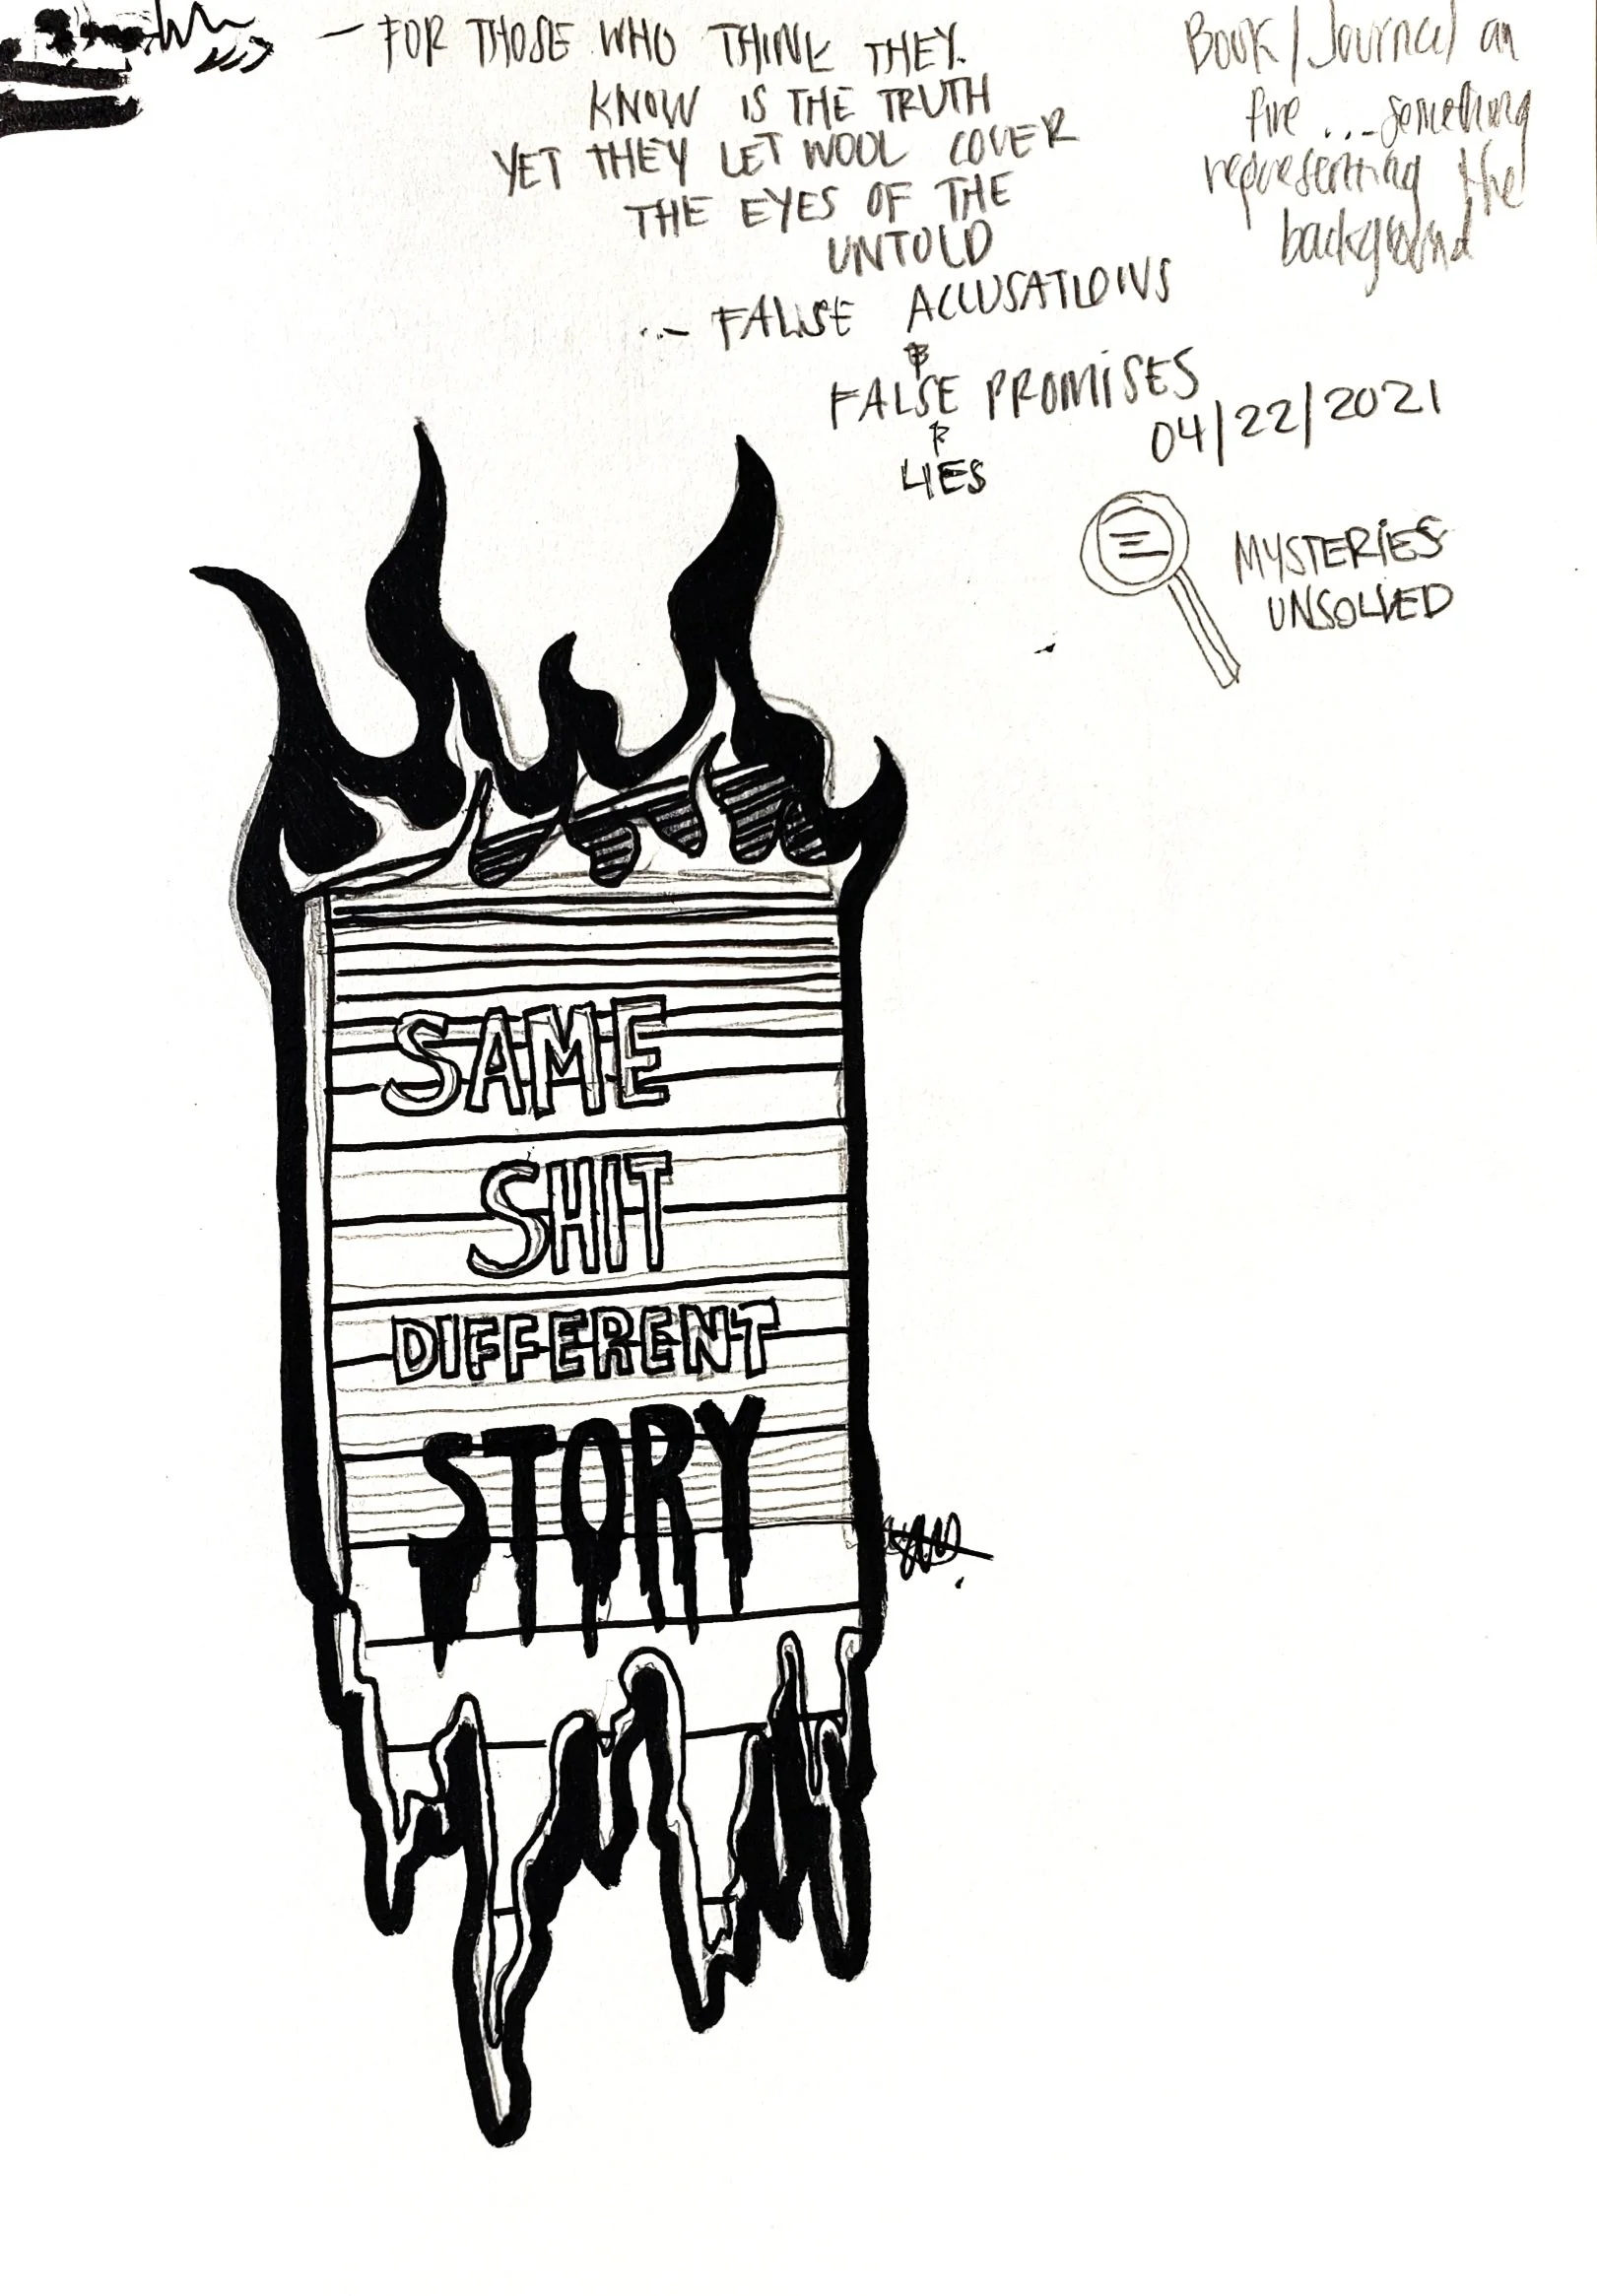 — FOR THOSE WHO THINK THEY
KNOW IS THE TRUTH
YET THEY LET WOOL COVER
THE EYES OF THE
UNTOLD
... FALSE ACCUSATIONS
&
FALSE PROMISES
&
LIES
Book/Journal on
fire ... something
representing the
background
04/22/2021
MYSTERIES
UNSOLVED
SAME
SHIT
DIFFERENT
STORY